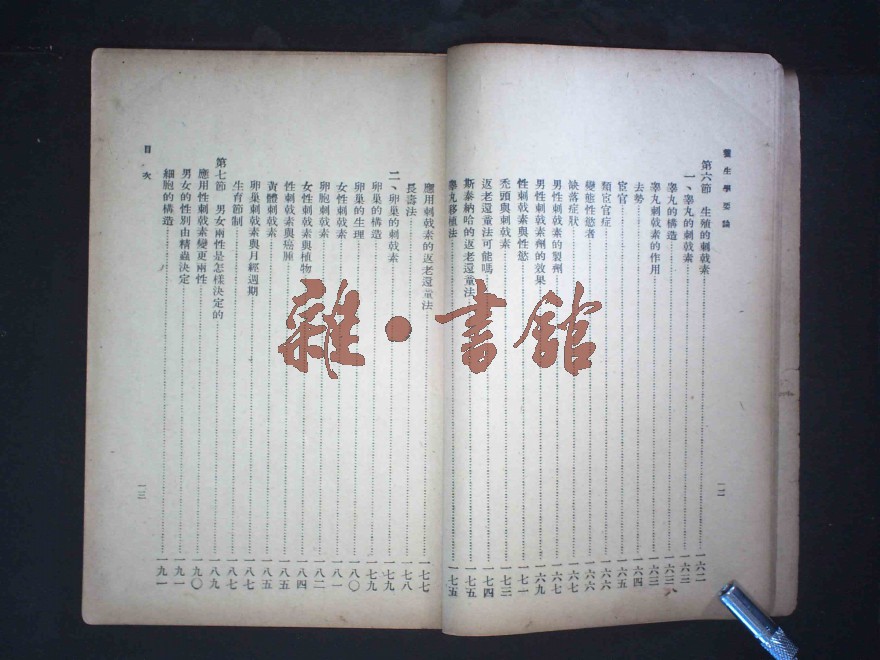 養生學要論
第六節　生殖的刺戟素……一六二
一、睾丸的刺戟素……一六三
睾丸的構造……一六三
睾丸刺戟素的作用……一六三
去勢……一六四
宦官……一六五
類宦官症……一六六
變態性慾者……一六六
缺落症狀……一六七
男性刺戟素的製劑……一六七
男性刺戟素劑的效果……一六九
性刺戟素與性慾……一七一
禿頭與刺戟素……一七三
返老還童法可能嗎……一七四
斯泰納哈的返老還童法……一七五
睾丸移植法……一七五
一二
應用刺戟素的返老還童法……一七七
長壽法……一七八
二、卵巢的刺戟素……一七九
卵巢的構造……一七九
卵巢的生理……一八〇
女性刺戟素……一八一
卵胞刺戟素……一八二
女性刺戟素與植物……一八四
性刺戟素與癌腫……一八五
黃體刺戟素……一八五
卵巢刺戟素與月經週期……一八七
生育節制……一八七
第七節　男女兩性是怎樣決定的……一八九
應用性刺戟素變更兩性……一九〇
男女的性別由精蟲決定……一九一
細胞的構造……一九一
目次
一三
雜·書館